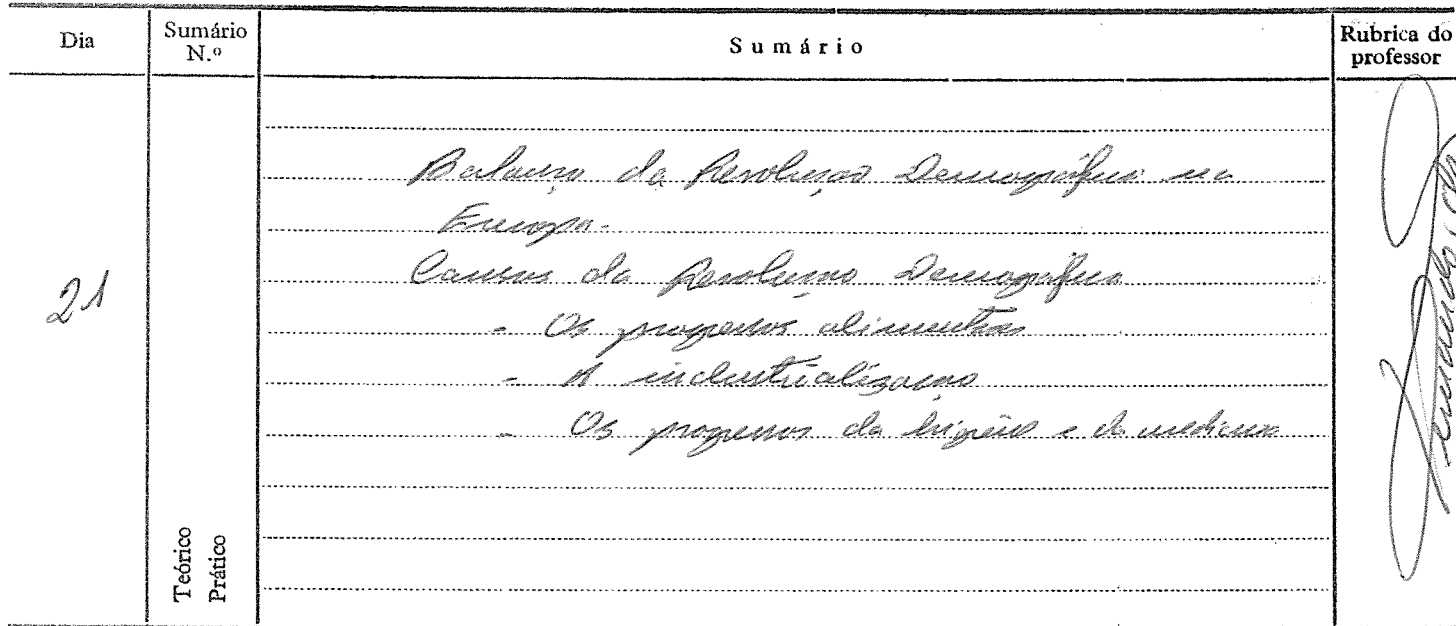 Dia
Sumário N.º
Sumário
Rubrica do professor
Balanço da Revolução Demográfica na
Europa.
Causas da Revolução Demográfica
- Os progressos alimentares
- A industrialização
- Os progressos da higiene e da medicina
21
Teórico
Prático